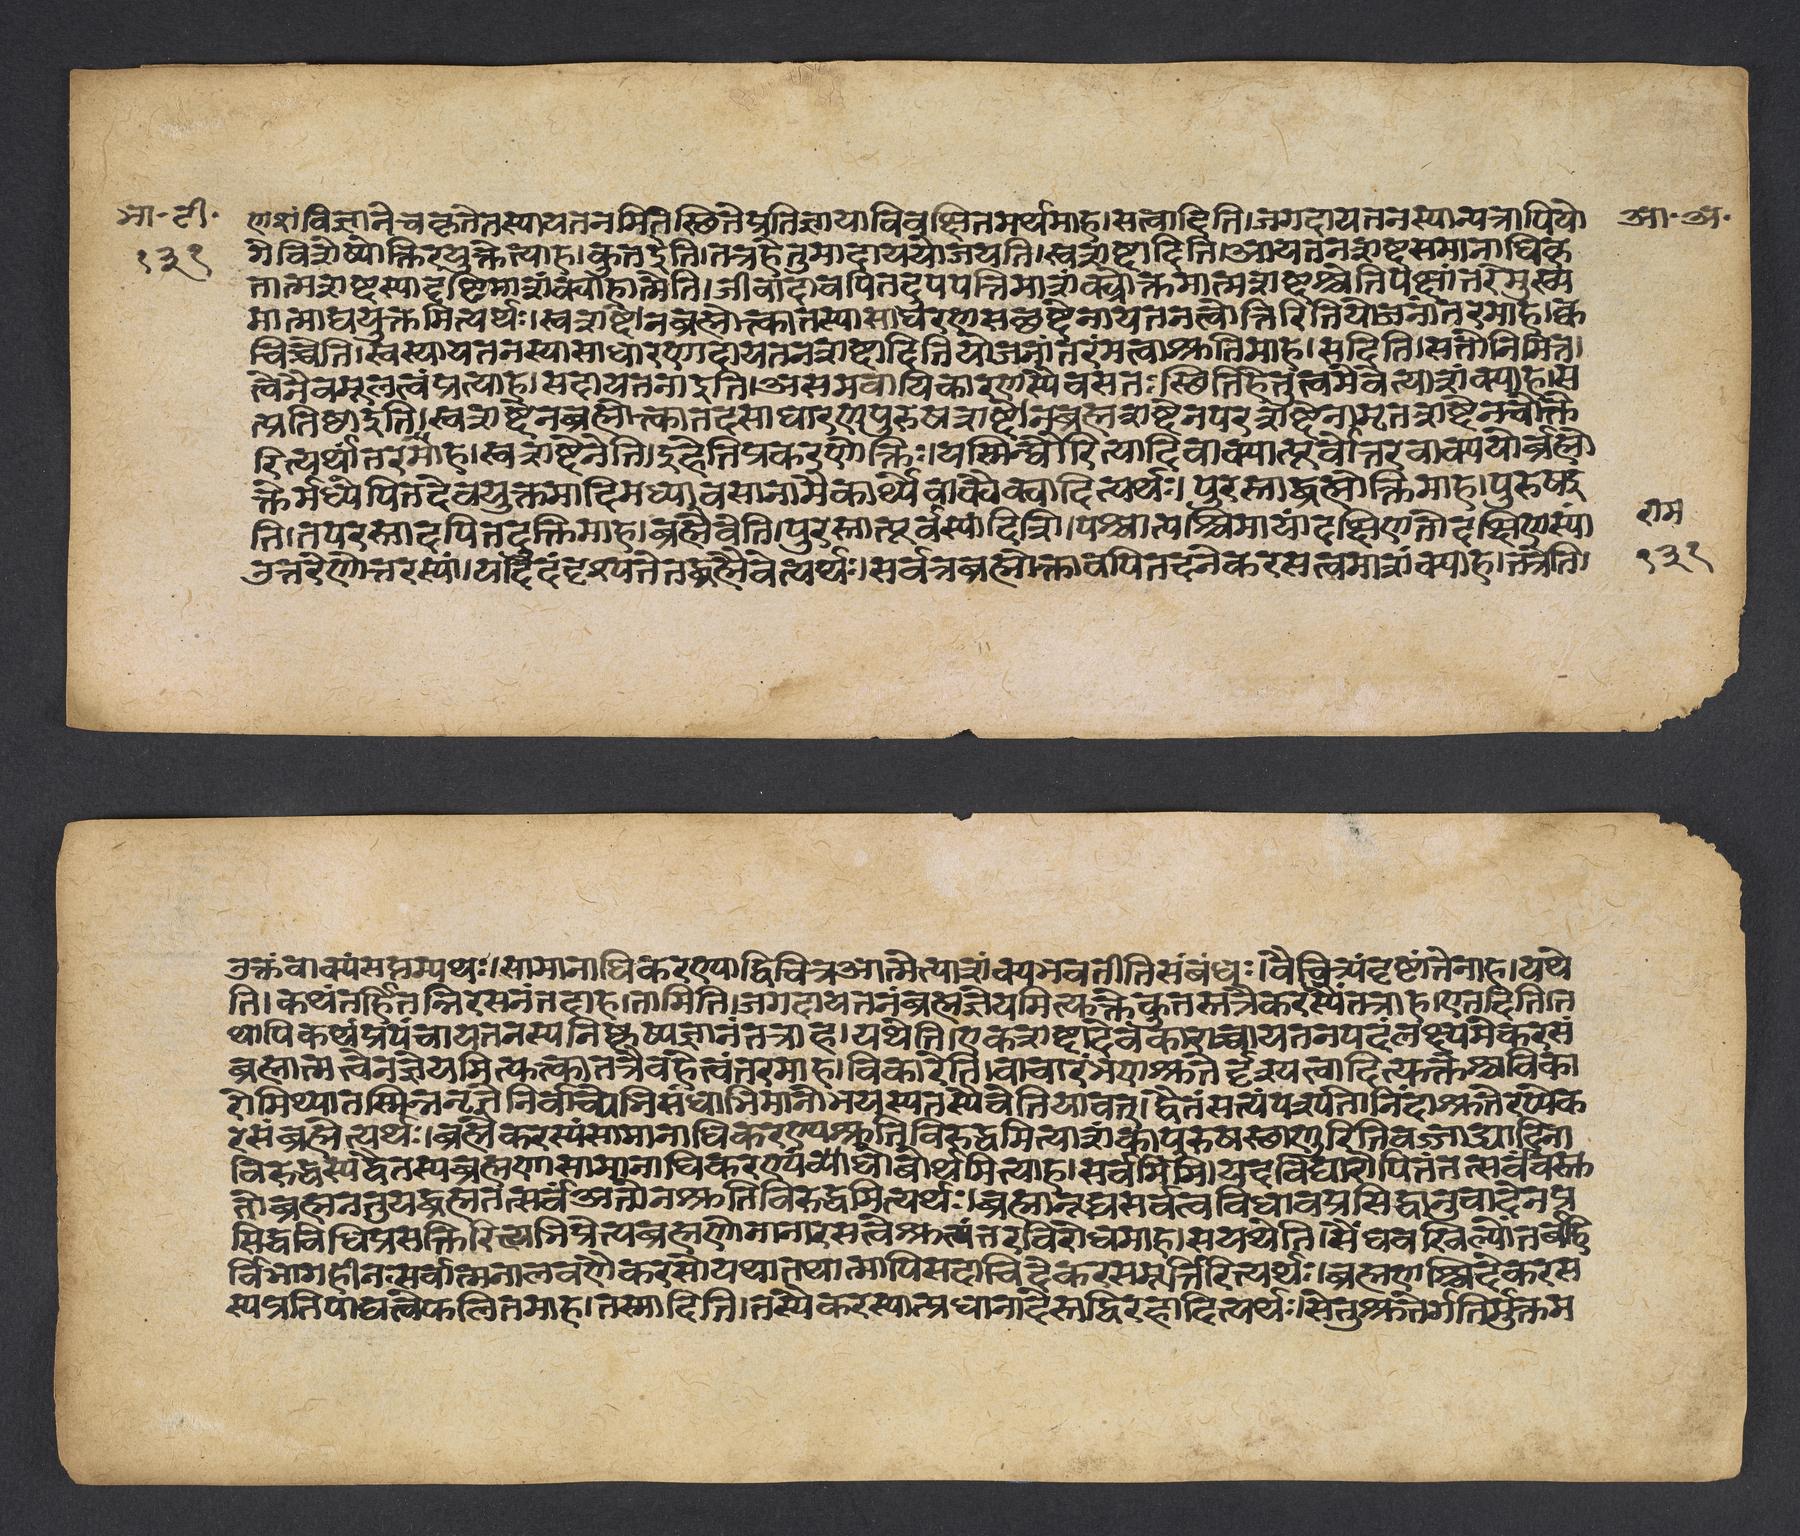 भा॰ टी॰
१३१
आ॰ अ॰
णशं विज्ञाने च कृते तस्यायतनमिति स्थिते प्रतिज्ञाया विवक्षितमर्थमाह। सत्वादिति। जगदायतनस्यान्यत्रापि यो
गे विशेष्योक्तिरयुक्तेत्याह। कुत इति। तत्र हेतुमादाय योजयति। स्वशब्दादिति। आयतनशब्दसमानाधिकृ
तात्मशब्दस्यादृष्टिमाशंक्योहात्मेति। जीवादावपि तदुपपत्तिमाशंक्योक्तमात्मशब्दश्चेति पक्षांतरे मुख्य
मात्माद्ययुक्तमित्यर्थः। स्वशब्देन ब्रह्मोत्का तस्यासाधारणसच्छब्देनायतनत्वोक्तिरिति योजनांतरमाह। क्व
चिच्चेति। स्वस्यायतनस्यासाधारणादायतनशब्दादिति योजनांतरं मत्वा श्रुतिमाह। सदिति। सतो निमित्त
त्वेमेव मूलत्वं प्रत्याह। सदायतना इति। असमवायिकारणस्येव सतः स्थितिहेतुत्वमेवेत्याशंक्याह। स
त्प्रतिष्ठा इति। स्वशब्देन ब्रह्मोत्का तदसाधारणपुरुषशब्देन ब्रह्मशब्देन परशब्देनामृतशब्देन चोक्ते
रित्यर्थांतरमाह। स्वशब्देनेति। इहेति प्रकरणोक्तिः। यस्मिन्द्यौरित्यादिवाक्यात्पूर्वोत्तरवाक्ययोर्ब्रह्मो
क्तेर्मध्येपि तदेव युक्तमादिमध्यावसानामैकार्थ्ये वाक्यैक्यादित्यर्थः। पुरस्ताद्ब्रह्मोक्तिमाह। पुरुष इ
ति। तपरस्तादपि तदुक्तिमाह। ब्रह्मैवेति। पुरस्तात्पूर्वस्यां दिशि। पश्चात्पश्चिमायां दक्षिणतो दक्षिणस्यां
उत्तरेणोत्तरस्यां। यदिदं दृश्यते तद्ब्रह्मैवेत्यर्थः। सर्वत्र ब्रह्मोक्तावपि तदनेकरसत्वमाशंक्याह। तत्रेति।
राम
१३१
उक्तं वाक्यं सप्तम्यथः। सामानाधिकरण्याद्विचित्र आत्मेत्याशंक्य भवतीति संबंधः। वैचित्र्यं दृष्टांतेनाह। यथे
ति। कथं तर्हि तन्निरसनं तदाह। तामिति। जगदायतनं ब्रह्म ज्ञेयमित्युक्ते कुतस्तत्रैकरस्यं तत्राह। एतदिति। त
थापि कथं प्रपंचायतनस्य निष्कृष्य ज्ञानं तत्राह। यथेति। एकशब्दादेवकाराच्चायतनपदं लक्ष्यमेकरसं
ब्रह्मात्मत्वेन ज्ञेयमित्युत्का तत्रैव हेत्वंतरमाह। विकारेति। वाचारंभणश्रुतेर्दृश्यत्वादित्युक्तेश्च विका
रो मिथ्या तस्मिन्ननृते निर्वाच्येभिसंधाभिमानो यस्य तस्येवेति यावत्। द्वैतं सत्यं पश्यतो निंदाश्रुतेरप्येक
रसं ब्रह्मेत्यर्थः। ब्रह्मैकरस्यं सामानाधिकरण्यश्रुतिविरुद्धमित्याशंक्य पुरुष स्थाणुरितिवज्जाड्यादिना
विरुद्धस्य द्वैतस्य ब्रह्मणा सामानाधिकरण्यं बाधार्थमित्याह। सर्वमिति। यदविद्यारोपितं तत्सर्वं वस्तु
तो ब्रह्म न तु यद्ब्रह्म तत्सर्वं अतो न श्रुतिविरुद्धमित्यर्थः। ब्रह्मानूद्य सर्वत्वविधावप्रसिद्धानुवादेन प्र
सिद्धविधिप्रसक्तिरित्यभिप्रेत्य ब्रह्मणो नानारसत्वे श्रुत्यंतरविरोधमाह। स यथेति। सैंधवखिल्योंतर्बहि
र्विभागहीनः सर्वात्मना लवणैकरसो यथा तथात्मापि सदा चिदेकरसमूर्त्तिरित्यर्थः। ब्रह्मणश्चिदेकरस
स्य प्रतिपाद्यत्वे फलितमाह। तस्मादिति। तस्यैकरस्यात्प्रधानादेस्तद्विरहादित्यर्थः। सेतुश्रुतेर्गतिर्मुक्तम